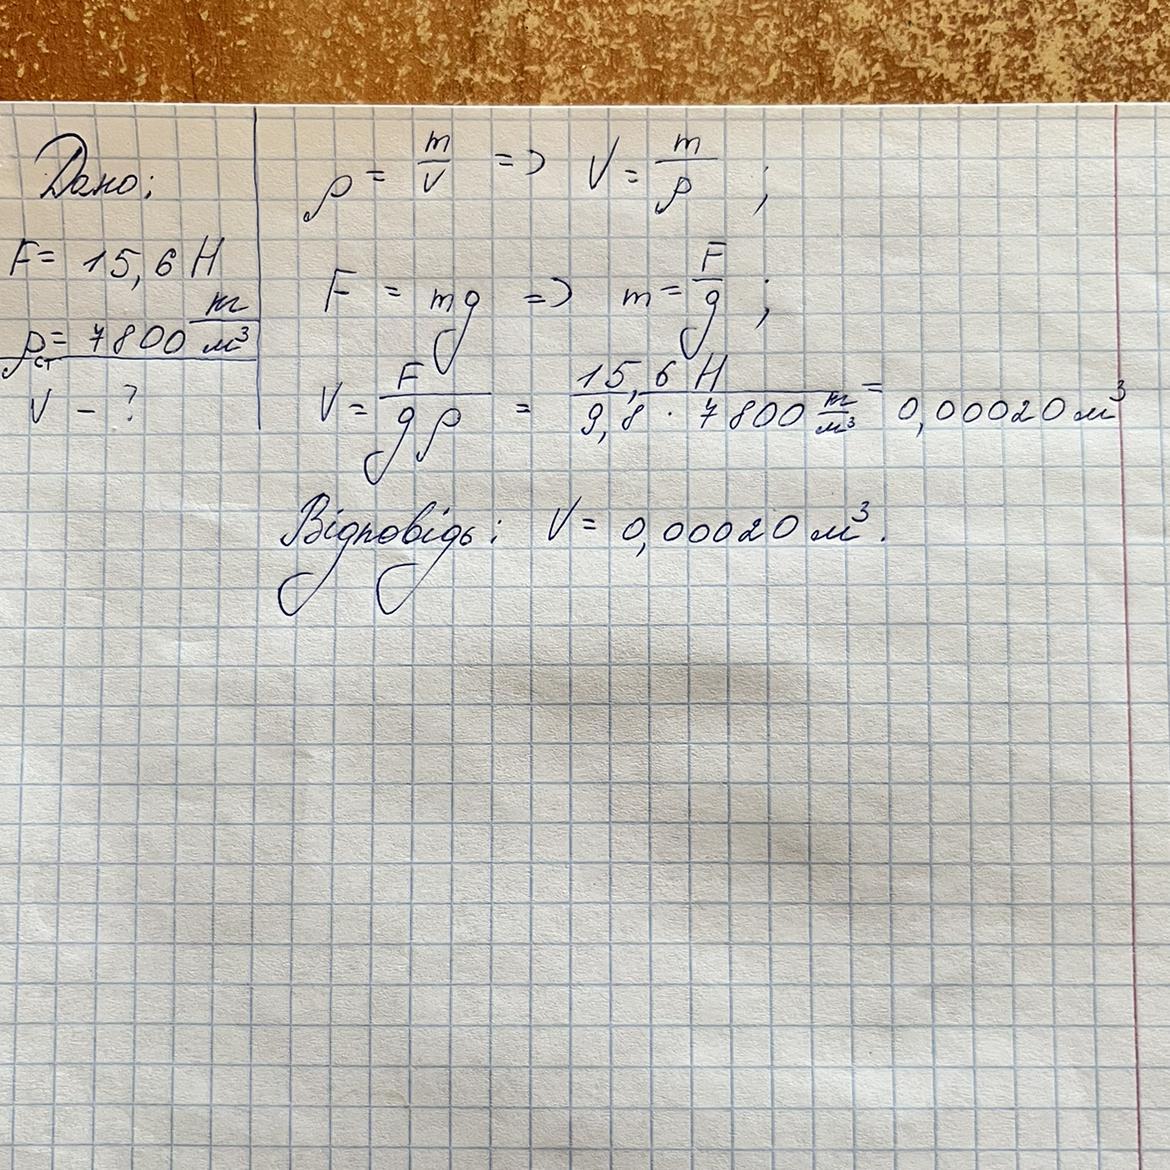 Дано:
F = 15,6 Н
ρст = 7800 т/м³
V - ?
ρ = m/V => V = m/ρ ;
F = mg => m = F/g ;
V = F/gρ = 15,6 Н / 9,8 · 7800 т/м³ = 0,00020 м³
Відповідь: V = 0,00020 м³.